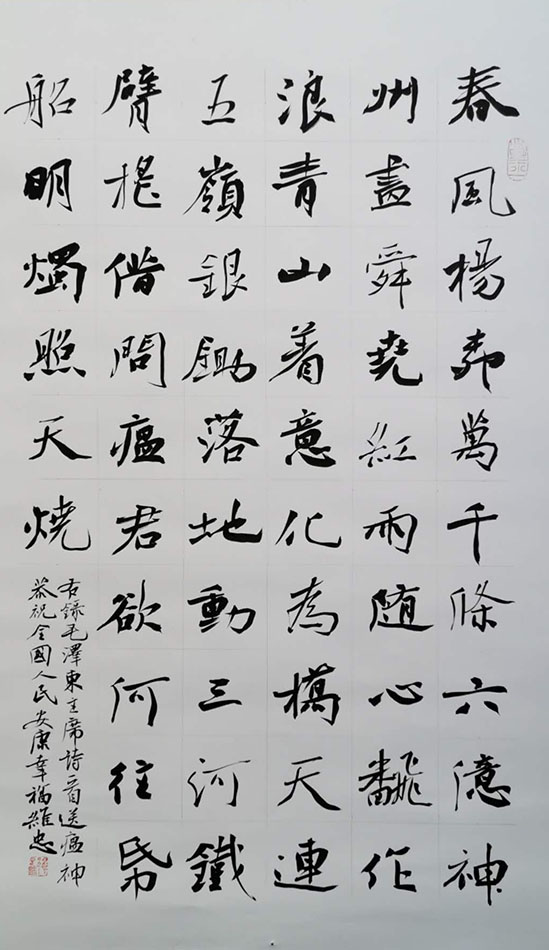 春風楊柳萬千條六億神
州盡舜堯紅雨随心翻作
浪青山着意化為橋天連
五嶺銀鋤落地動三河鐵
臂搖借問瘟君欲何往帋
船明燭照天燒
右録毛澤東主席詩首送瘟神
恭祝全國人民安康幸福維忠